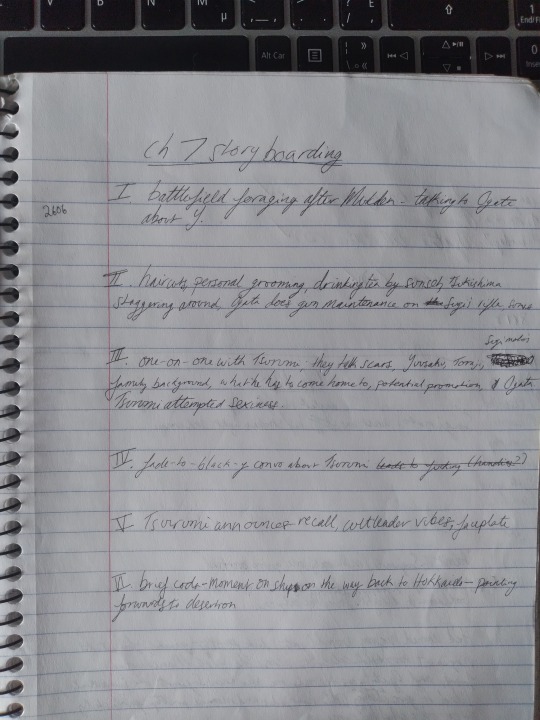 V
B
N
M
µ
?
E
/
1
End/F
Alt Car
0
Inse
Ch 7 storyboarding
2606
I battlefield foraging after Mukden - talking to Ogata
about Y.
II. haircuts, personal grooming, drinking tea by sunset, Tsukishima
staggering around, Ogata does gun maintenance on Sugi rifle, some
Sugimoto's
III. one-on-one with Tsurumi, they talk scars, Yuusaku, Toraji,
family background, what he has to come home to, potential promotion, Ogata
Tsurumi attempted sexiness.
IV. fade-to-black-y convo about Tsurumi leads to
V Tsurumi announces recall, cult leader vibes, faceplate
VI brief coda-moment on ship on the way back to Hokkaido - pointing
forwards to desertion